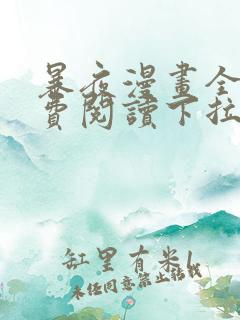 暴夜漫畫全
費閱讀下拉
缸里有米l
未经同意禁止转载